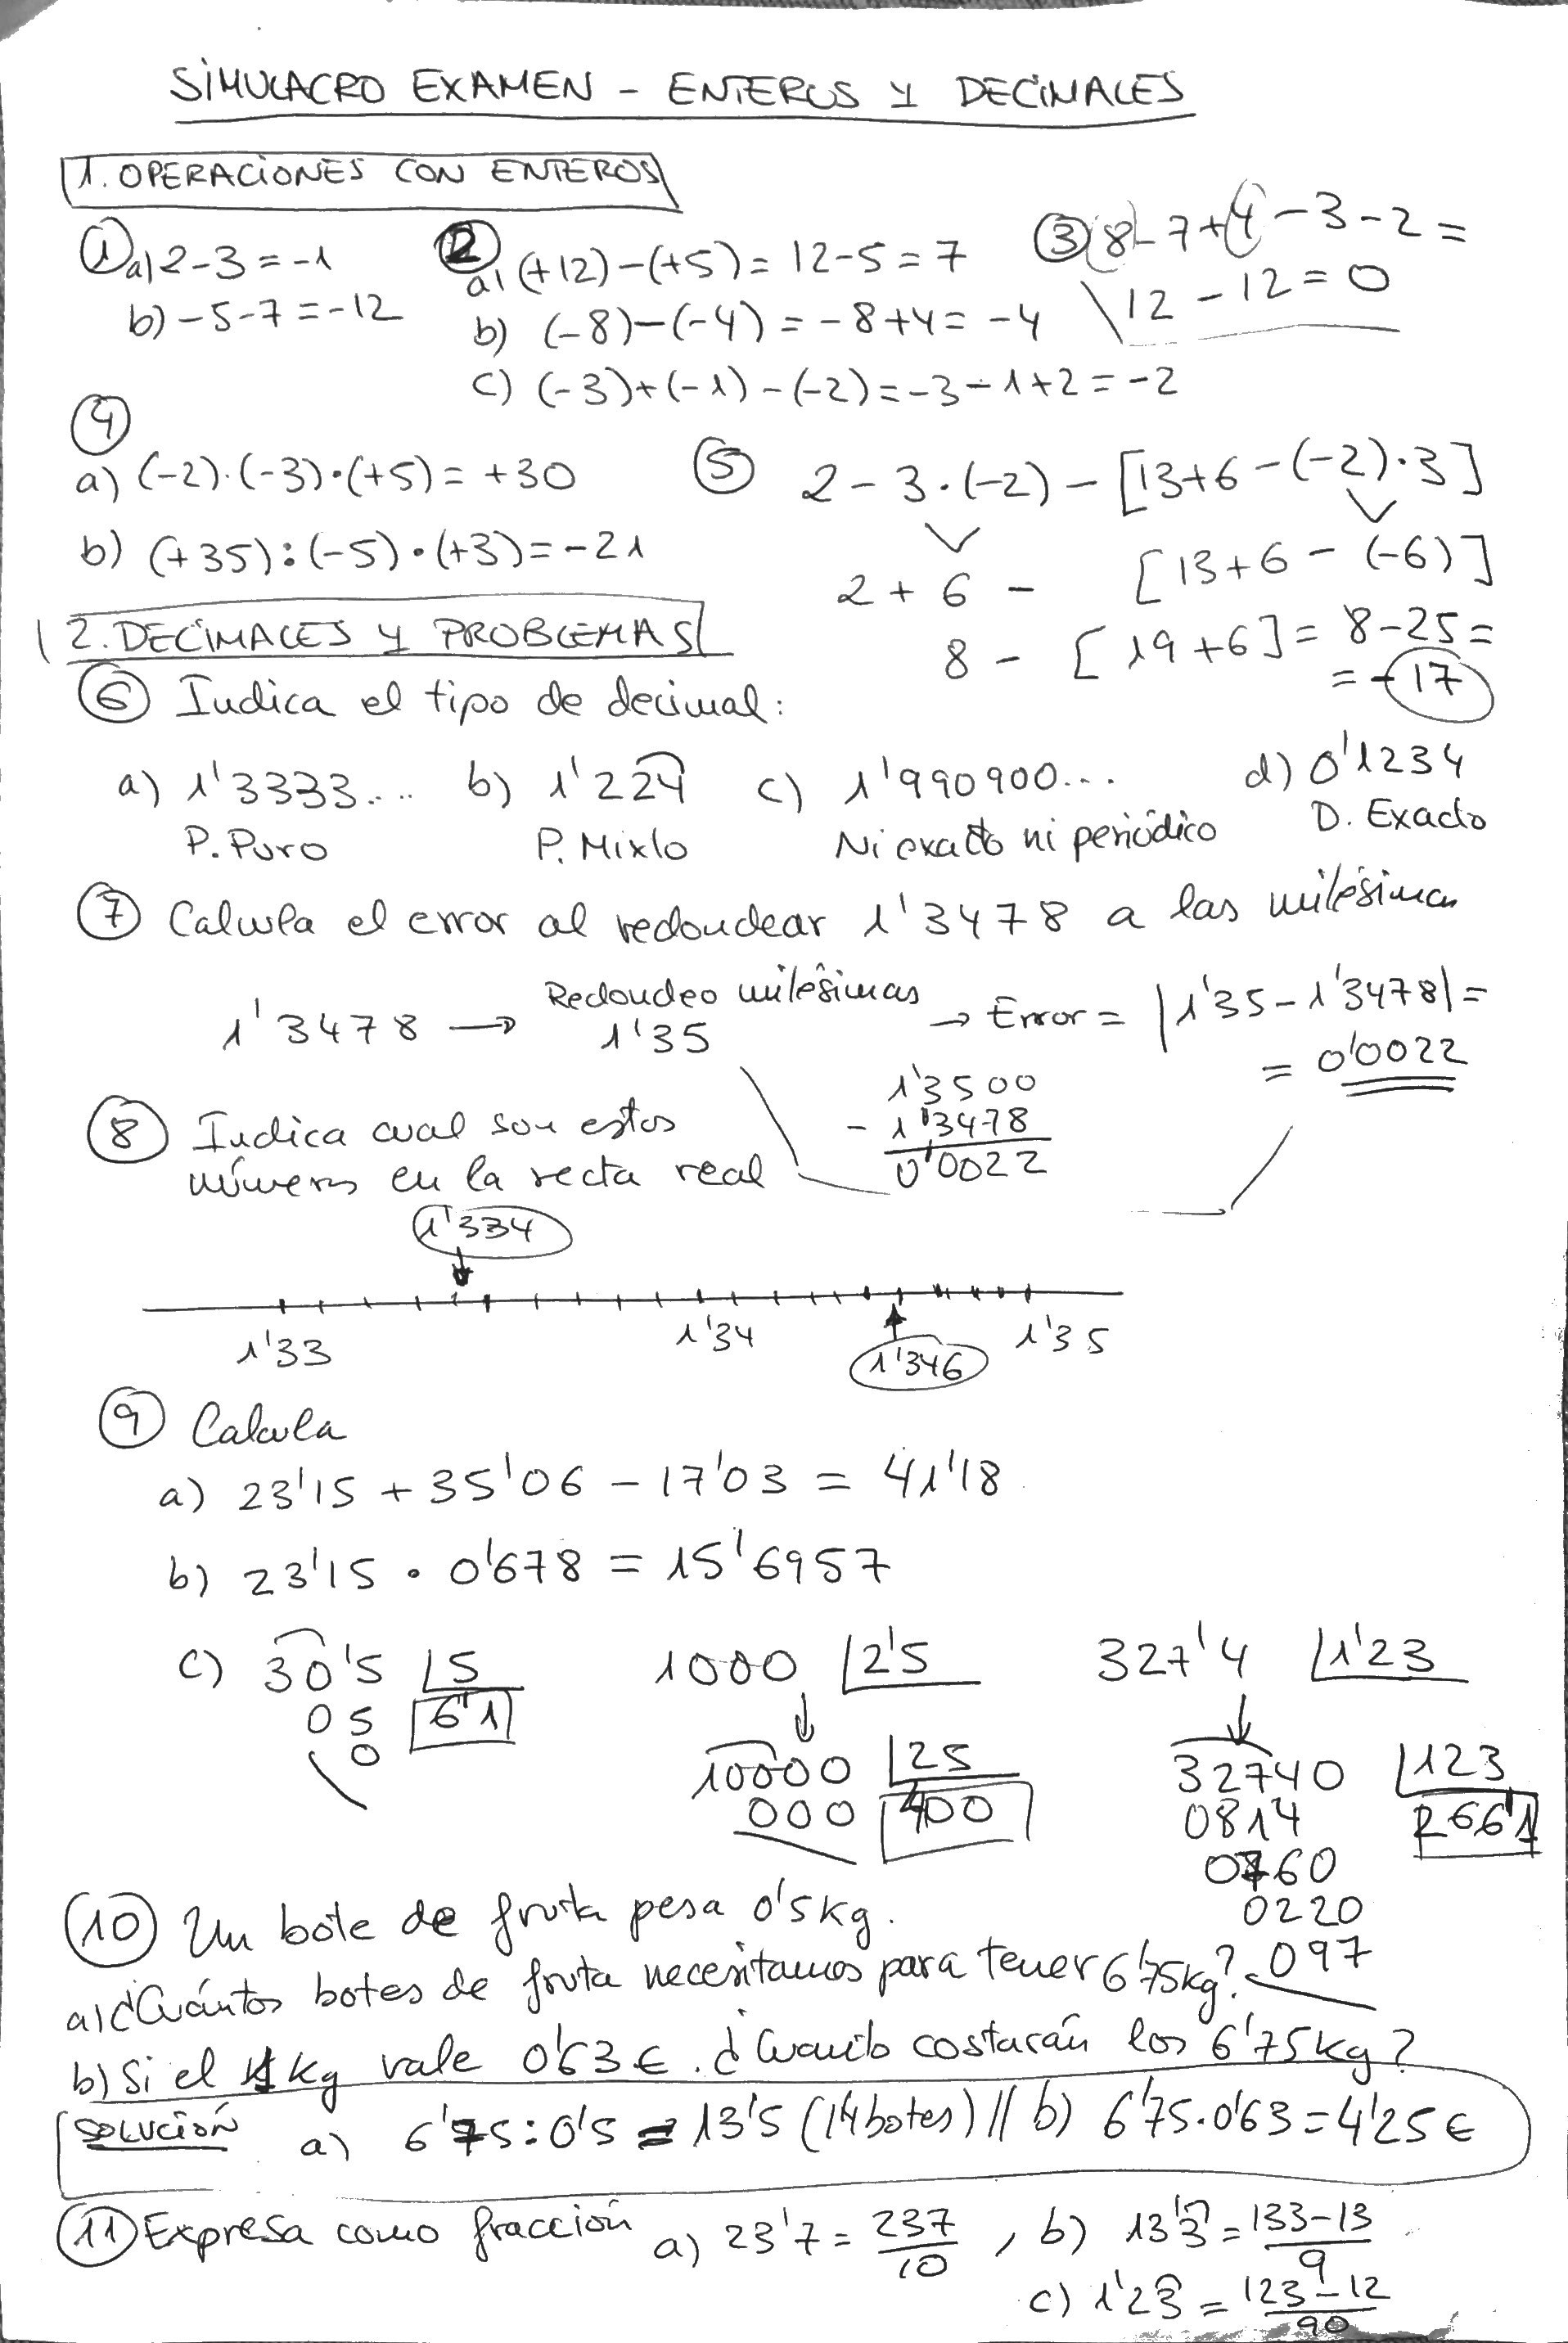 SIMULACRO EXAMEN - ENTEROS Y DECIMALES
1. OPERACIONES CON ENTEROS
① a) 2-3 = -1
b) -5-7 = -12
② a) (+12)-(+5) = 12-5 = 7
b) (-8)-(-4) = -8+4 = -4
c) (-3)+(-1)-(-2) = -3-1+2 = -2
③ 8-7+4-3-2 =
12-12 = 0
④
a) (-2)·(-3)·(+5) = +30
b) (+35):(-5)·(+3) = -21
⑤ 2-3·(-2)-[13+6-(-2)·3]
2+6 - [13+6-(-6)]
8 - [19+6] = 8-25 =
= -17
2. DECIMALES Y PROBLEMAS
⑥ Indica el tipo de decimal:
a) 1'3333... b) 1'224 c) 1'990900... d) 0'1234
P. Puro P. Mixto Ni exacto ni periódico D. Exacto
⑦ Calcula el error al redondear 1'3478 a las milésimas
1'3478 → Redondeo milésimas 1'35 → Error = |1'35-1'3478| =
= 0'0022
1'3500
- 1'3478
0'0022
⑧ Indica cual son estos
números en la recta real
1'334
1'33 1'34 1'35
1'346
⑨ Calcula
a) 23'15 + 35'06 - 17'03 = 41'18
b) 23'15 · 0'678 = 15'6957
c) 30'5 5 1000 2'5 327'4 1'23
05 6'1
0
10000 25 32740 123
000 400 0814 266'1
0760
0220
097
⑩ Un bote de fruta pesa 0'5kg.
a) ¿Cuántos botes de fruta necesitamos para tener 6'75kg?
b) Si el 1 kg vale 0'63€. ¿Cuanto costarán los 6'75kg?
SOLUCIÓN a) 6'75:0'5 = 13'5 (14 botes) // b) 6'75·0'63 = 4'25€
⑪ Expresa como fracción a) 23'7 = 237/10, b) 13'3 = 133-13/9
c) 1'23 = 123-12/90